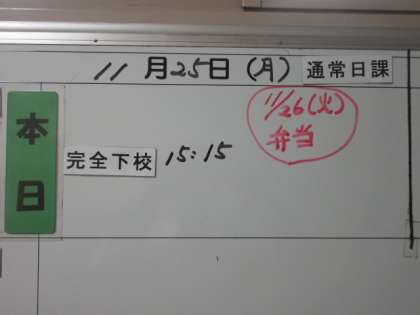 11月25日(月) 通常日課
本日
完全下校 15:15
11/26(火)
弁当